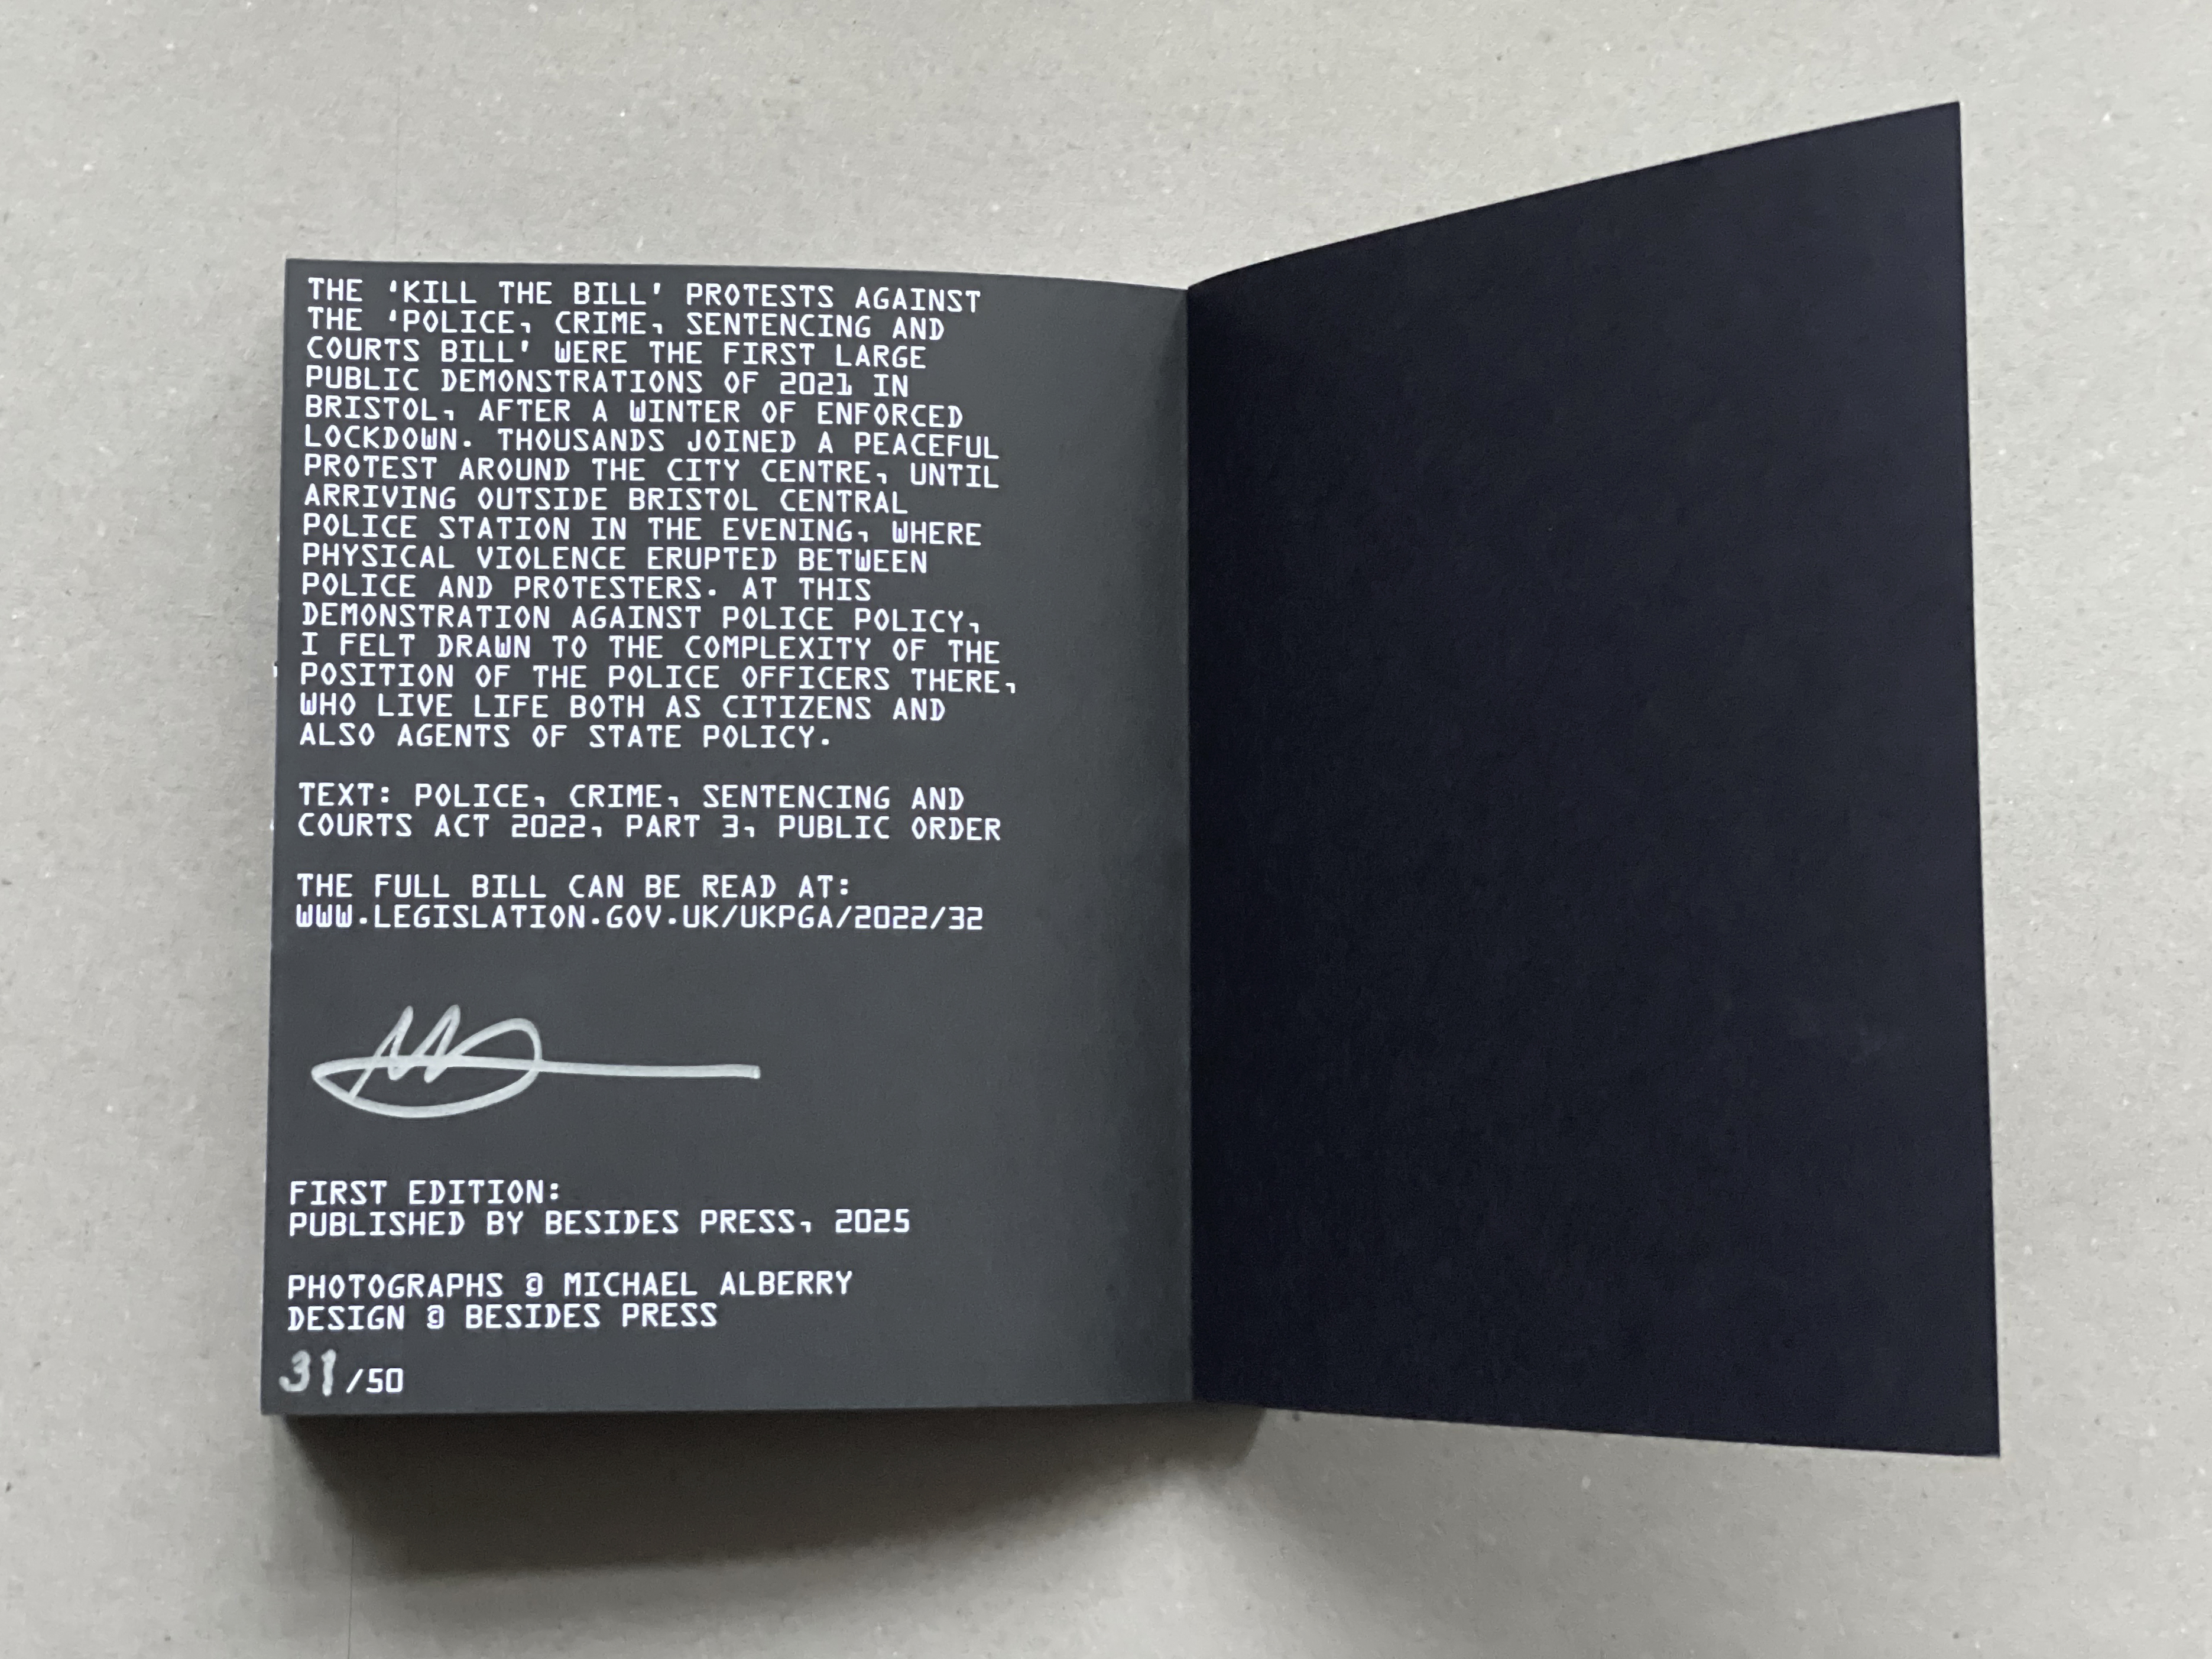 THE 'KILL THE BILL' PROTESTS AGAINST
THE 'POLICE, CRIME, SENTENCING AND
COURTS BILL' WERE THE FIRST LARGE
PUBLIC DEMONSTRATIONS OF 2021 IN
BRISTOL, AFTER A WINTER OF ENFORCED
LOCKDOWN. THOUSANDS JOINED A PEACEFUL
PROTEST AROUND THE CITY CENTRE, UNTIL
ARRIVING OUTSIDE BRISTOL CENTRAL
POLICE STATION IN THE EVENING, WHERE
PHYSICAL VIOLENCE ERUPTED BETWEEN
POLICE AND PROTESTERS. AT THIS
DEMONSTRATION AGAINST POLICE POLICY,
I FELT DRAWN TO THE COMPLEXITY OF THE
POSITION OF THE POLICE OFFICERS THERE,
WHO LIVE LIFE BOTH AS CITIZENS AND
ALSO AGENTS OF STATE POLICY.
TEXT: POLICE, CRIME, SENTENCING AND
COURTS ACT 2022, PART 3, PUBLIC ORDER
THE FULL BILL CAN BE READ AT:
WWW.LEGISLATION.GOV.UK/UKPGA/2022/32
FIRST EDITION:
PUBLISHED BY BESIDES PRESS, 2025
PHOTOGRAPHS © MICHAEL ALBERRY
DESIGN © BESIDES PRESS
31/50